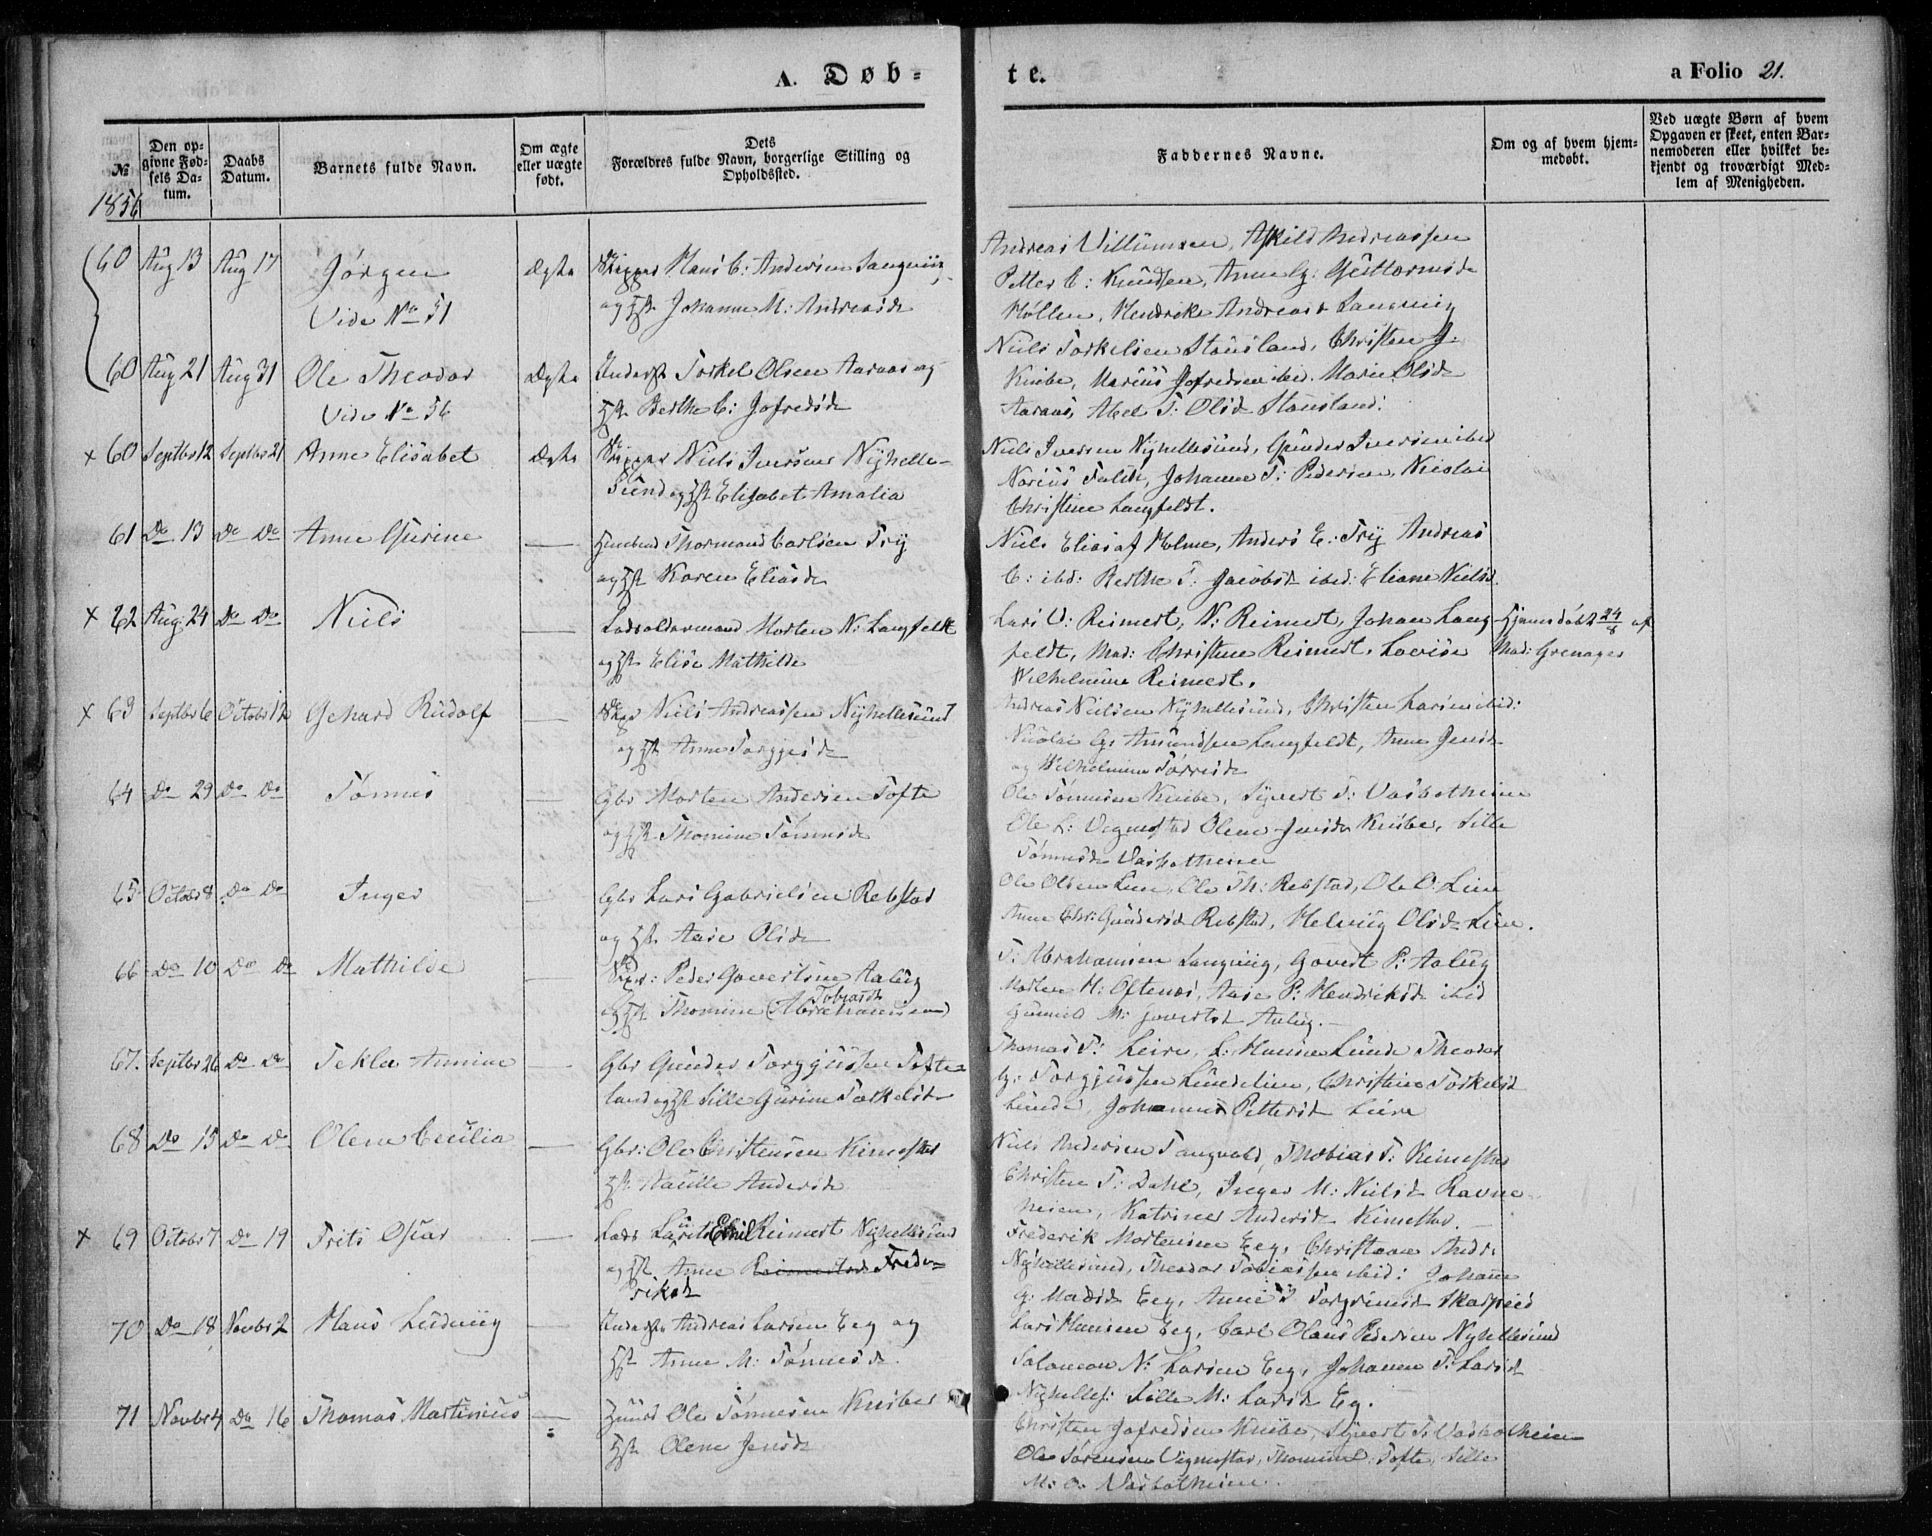 A. Døb=
te.
a Folio 21.
№
Den op-
givne Fød-
sels Da-
tum.
Daabs
Datum.
Barnets fulde Navn.
Om ægte
eller uægte
født.
Dets
Forældres fulde Navn, borgerlige Stilling og
Opholdssted.
Faddernes Navne.
Om og af hvem hjem-
medøbt.
Ved uægte Børn af hvem
Opgaven er skeet, enten Bar-
nemoderen eller hvilket be-
kjendt og troværdigt Med-
lem af Menigheden.
1856
60 Aug 13 Aug 17 Jørgen Ægte Skipper Hans C: Andersen Langviig
Vide No 51 og Hst Johanne M: Andreasd
Andreas Villumsen, Askild Andreassen
Petter C: Knudsen, Anne G: Guttormsd
Høllen, Hendrike Andreasd Langviig
60 Aug 21 Aug 31 Ole Theodor Ægte Inderst Torkel Olsen Aaraas og
Vide No 56 Hst Berthe C: Jofredsd
Niels Torkelsen Stausland, Christen J.
Knibe, Marius Jofredsen ibid. Marie Olsd
Aaraas, Abel T: Olsd Stausland.
x 60 Septbr 12 Septbr 21 Anne Elisabet Ægte Skipper Niels Iversen Nyhelle-
sund og Hst Elisabet Amalia
Niels Iversen Nyhellesund, Gunder Iversen ibid
Johanne T: Pedersen, Nicolai
Christine Langfeldt.
61 Do 13 Do Do Anne Gurine — Huusmd Thormand Carlsen Try
og Hst Karen Eliasd
Niels Elias af Holme, Anders E: Try Andreas
C: ibd: Berthe T: Jacobsd ibid: Eliane Nielsd.
x 62 Aug: 24 Do Do Niels — Lodsoldermand Morten N: Langfeldt
og Hst Elise Mathilde
Lars U: Reimert, N: Reimert, Johan Lang-
feldt, Mad: Christine Reimert, Lovise
Wilhelmine Reimert.
Hjemmedøbt 24/8 af
Mad: Grenager
x 63 Septbr 6 Octobr 12 Gehard Rudolf — Skipr Niels Andreassen Nyhellesund
og Hst Anne Torgjesd
Andreas Nielsen Nyhellesund, Christen Larsen ibid:
Nicolai G: Amundsen Langfeldt, Anne Jensd
og Wilhelmine Torresd
64 Do 29 Do Do Tønnes — Gbr Morten Andersen Tofte
og Hst Thomine Tønnesd
Ole Tønnesen Knibe, Syvert T: Vasbotheien
Ole L: Vegnestad Olene Jensd Knibe, Sille
Tønnesd Vasbotheien
65 Octobr 8 Do Do Inger — Gbr Lars Gabrielsen Rebstad
og Hst Aase Olsd
Ole Olsen Lien, Ole Th: Rebstad, Ole O: Lien
Anne Chr: Gundersd Rebstad, Helviig Olsd Lien.
66 Do 10 Do Do Mathilde — Skipr: Peder Govertsen Aalug
og Hst Thomine (Abrahamsen) Tobiasd
T: Abrahamsen Langviig, Govert P: Aalug
Morten H: Oftenæs, Aase P: Hendriksd ibid
Gunnild M: Govertsd Aalug.
67. Septbr 26 Do Do Tekla Amine — Gbr Gunder Torgjussen Tofte-
land og Hst Sille Gurine Torkelsd
Thomas T: Leire, L: Hansen Lunde Theodor
G: Torgjussen Lundelien, Christine Torkelsd
Lunde, Johanne Pettersd Leire
68 Do 15 Do Do Olene Cecilia — Gbr: Ole Christensen Kimestad
Hst: Andersd
Niels Andersen Tangvald, Thobias T: Kimestad
Christen T: Dahl, Inger M: Nielsd Ravne-
heien, Katrine Andersd Kimestad.
x 69 Octobr 7 Do 19 Frits Oscar — Lods Laurits Emil Reimert Nyhellesund
og Hst Anne Reimertsd Frede-
rikad
Frederik Mortensen Eeg, Christiane Andr:
Nyhellesund, Theodor Tobiassen ibid: Johanne
G: Madsd Eeg, Anne T Torgrimsd Skarpeid
70 Do 18 Novbr 2 Hans Ludvig — Inderst Andreas Larsen Eeg og
Hst Anne M: Tønnesd.
Lars Hansen Eeg, Carl Olaus Pedersen Nyhellesund
Salomon N: Larsen Eeg, Johanne T: Larsd
Nyhelles: Sille M: Larsd Eg.
71 Novbr 4 Do 16 Thomas Martinius — Huusd Ole Tønnesen Knibe
Hst Olene Jensd
Christen Jofredsen Knibe, Syvert T: Vasbotheien
Ole Sørensen Vegnestad, Thomine Tofte, Sille
M: O: Vasbotheien.